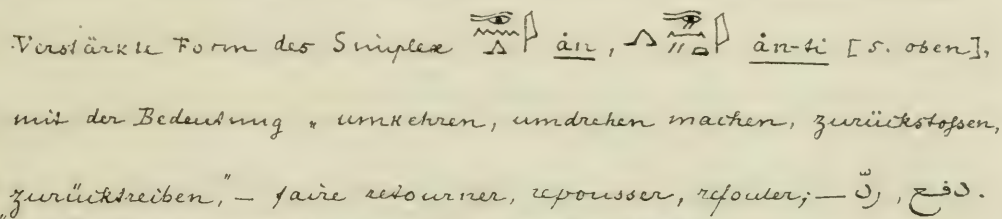 Verstärkte Form des Simplex ån, ån-ti [s. oben],
mit der Bedeutung „umkehren, umdrehen machen, zurückstossen,
„zurücktreiben," – faire retourner, repousser, refouler; — ردّ, دفع.